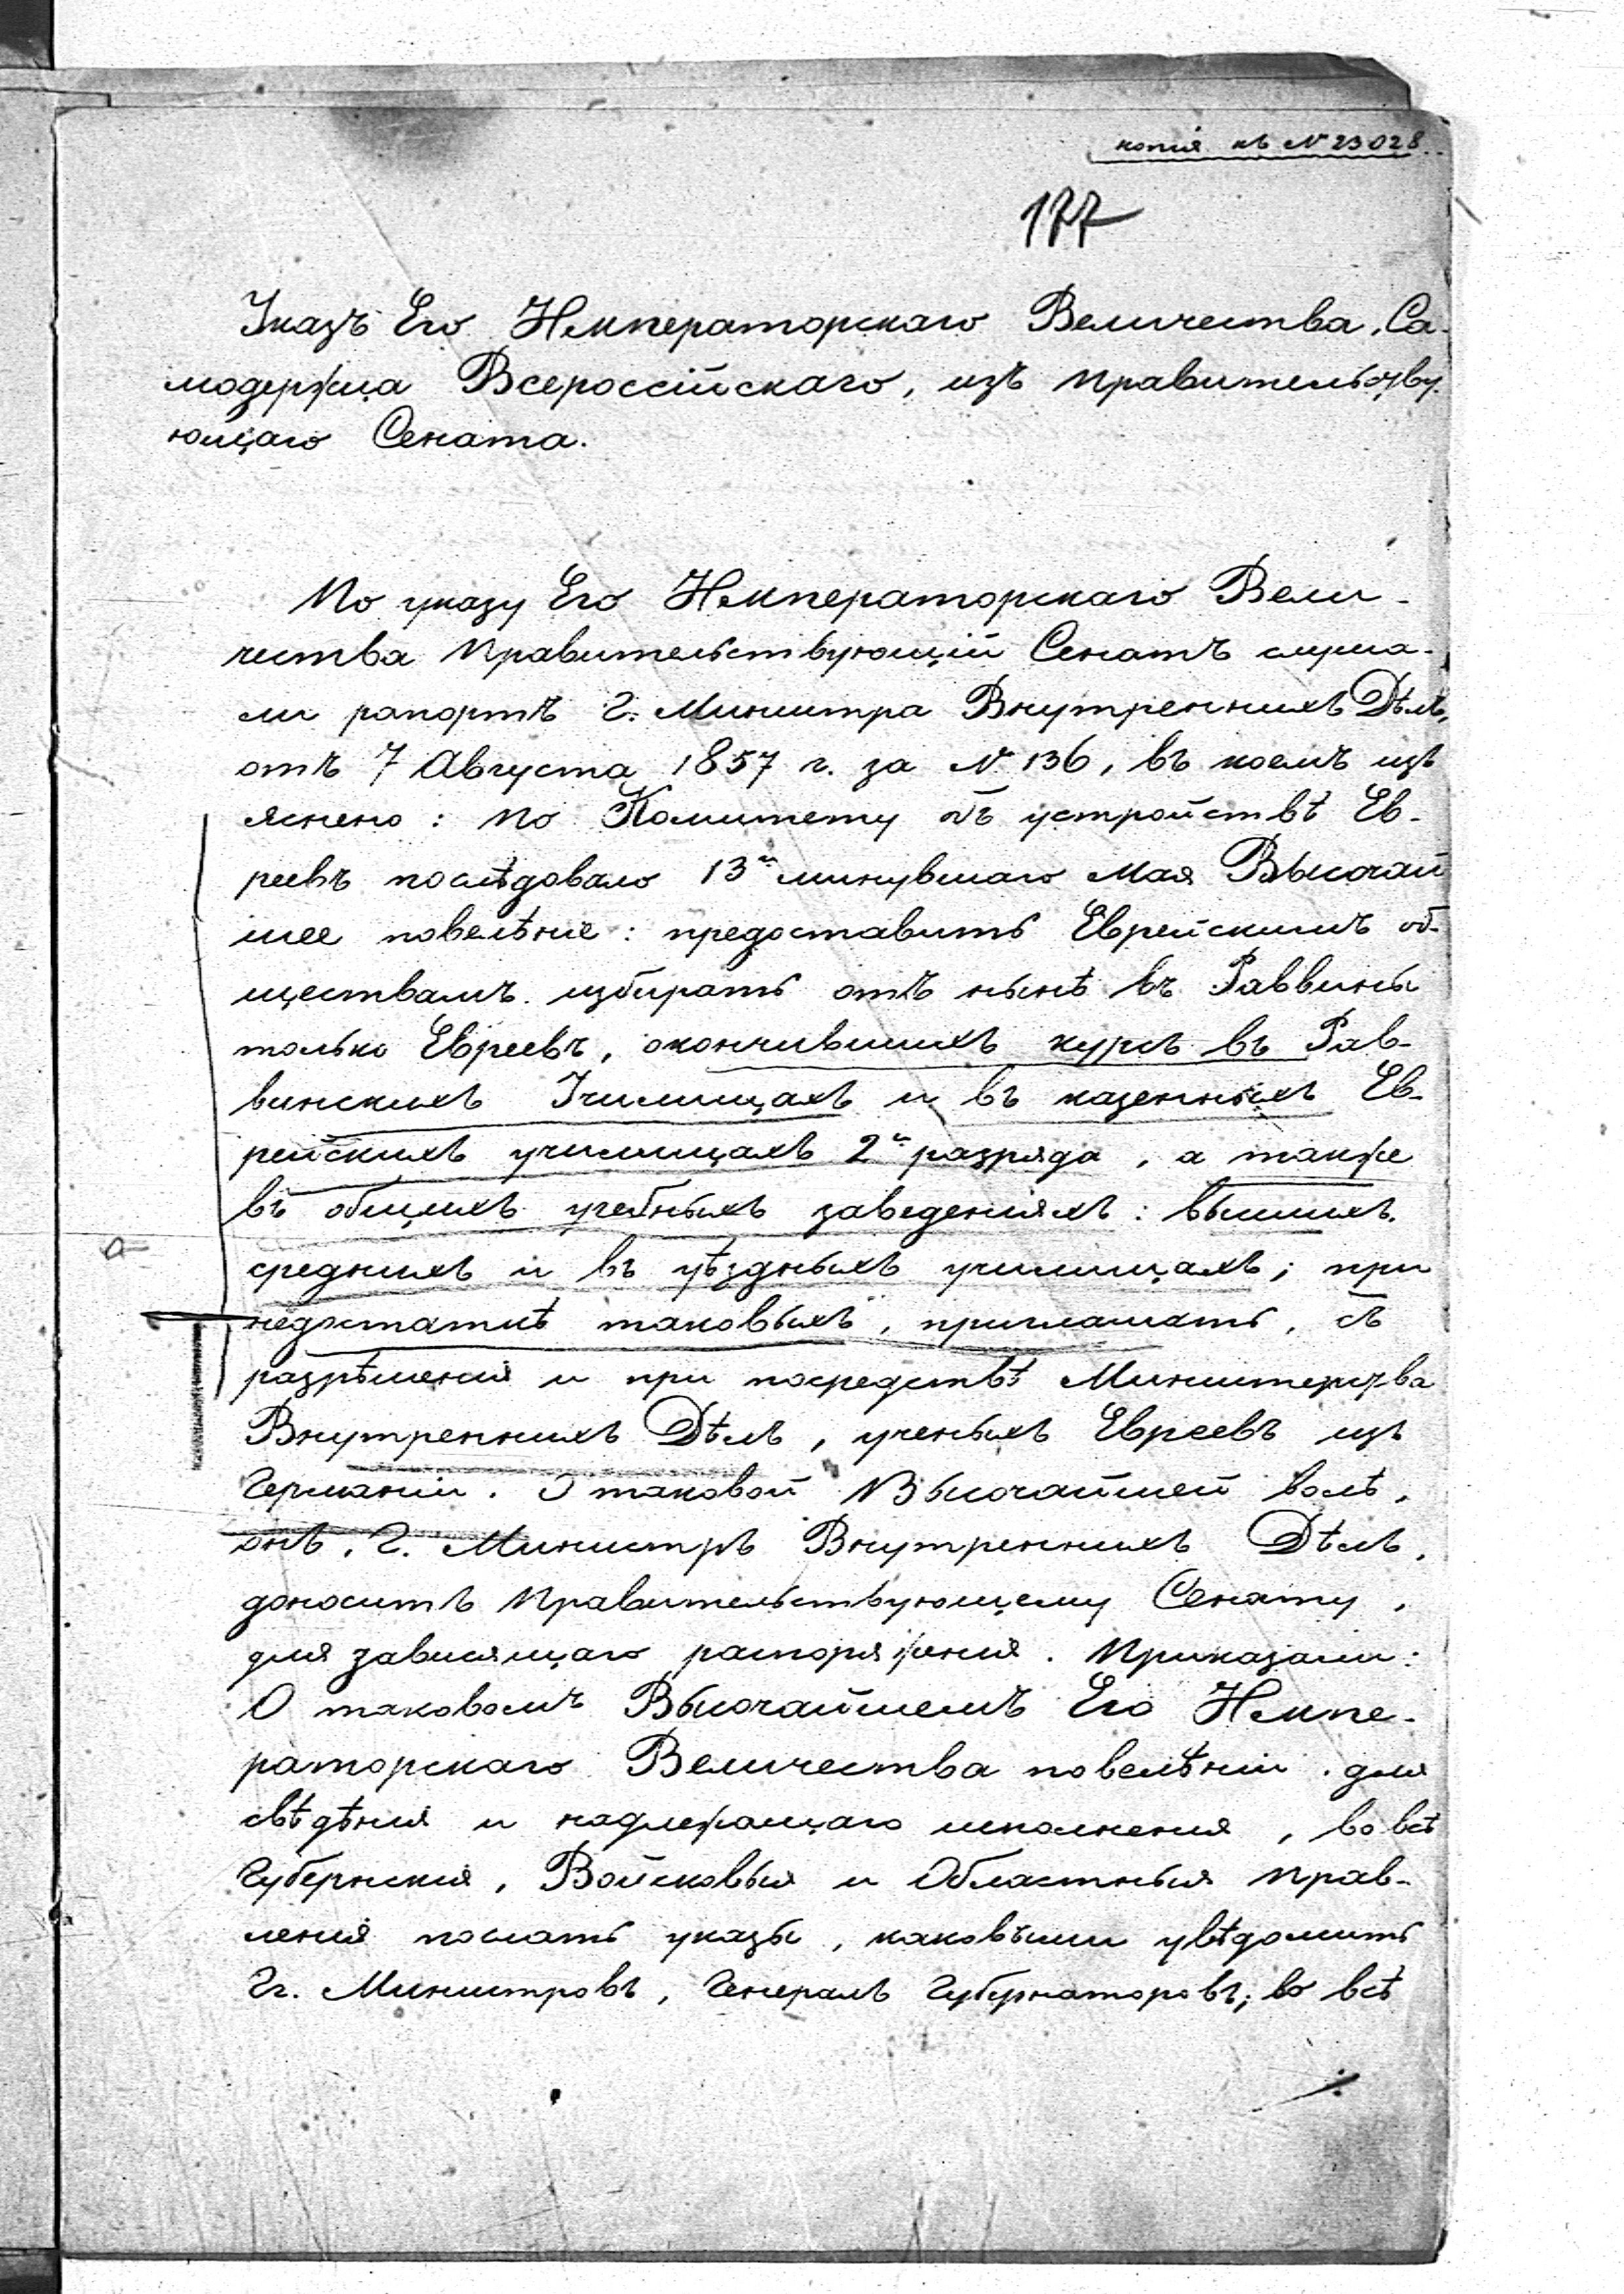 копія къ № 23028.
177
Указъ Его Императорскаго Величества, Са-
модержца Всероссійскаго, изъ Правительству-
ющаго Сената.
По указу Его Императорскаго Вели-
чества Правительствующій Сенатъ слуша-
ли рапортъ Г. Министра Внутреннихъ Дѣлъ,
отъ 7 Августа 1857 г. за № 136, въ коемъ изъ
яснено: По Комитету объ устройствѣ Ев-
реевъ послѣдовало 13го минувшаго Мая Высочай
шее повелѣніе: предоставить Еврейскимъ об-
ществамъ избирать отъ нынѣ въ Раввины
только Евреевъ, окончившихъ курсъ въ Рав-
винскихъ Училищахъ и въ казенныхъ Ев-
рейскихъ училищахъ 2го разряда, а также
въ общихъ учебныхъ заведеніяхъ: высшихъ,
среднихъ и въ уѣздныхъ училищахъ; при
недостаткѣ таковыхъ, приглашать, съ
разрѣшенія и при посредствѣ Министерства
Внутреннихъ Дѣлъ, ученыхъ Евреевъ изъ
Германіи. О таковой Высочайшей волѣ,
онъ, Г. Министръ Внутреннихъ Дѣлъ,
доноситъ Правительствующему Сенату,
для зависящаго распоряженія. Приказали:
О таковомъ Высочайшемъ Его Импе-
раторскаго Величества повелѣніи, для
свѣдѣнія и надлежащаго исполненія, во всѣ
Губернскія, Войсковыя и Областныя Прав-
ленія послать указы, каковыми увѣдомить
Гг. Министровъ, Генералъ Губернаторовъ; во всѣ